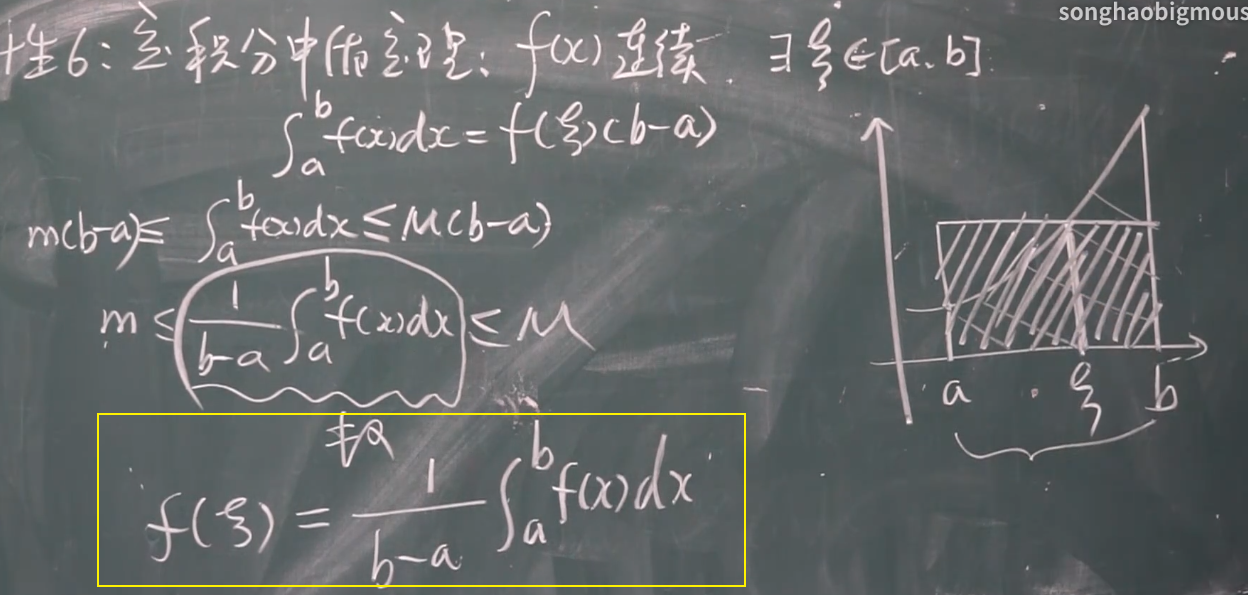 songhaobigmous
性6:定积分中值定理:f(x)连续.∃ξ∈[a,b].
∫_a^b f(x)dx=f(ξ)(b-a)
m(b-a)≤ ∫_a^b f(x)dx≤M(b-a)
m≤ 1/(b-a) ∫_a^b f(x)dx ≤M
数
f(ξ)= 1/(b-a) ∫_a^b f(x)dx
a ξ b